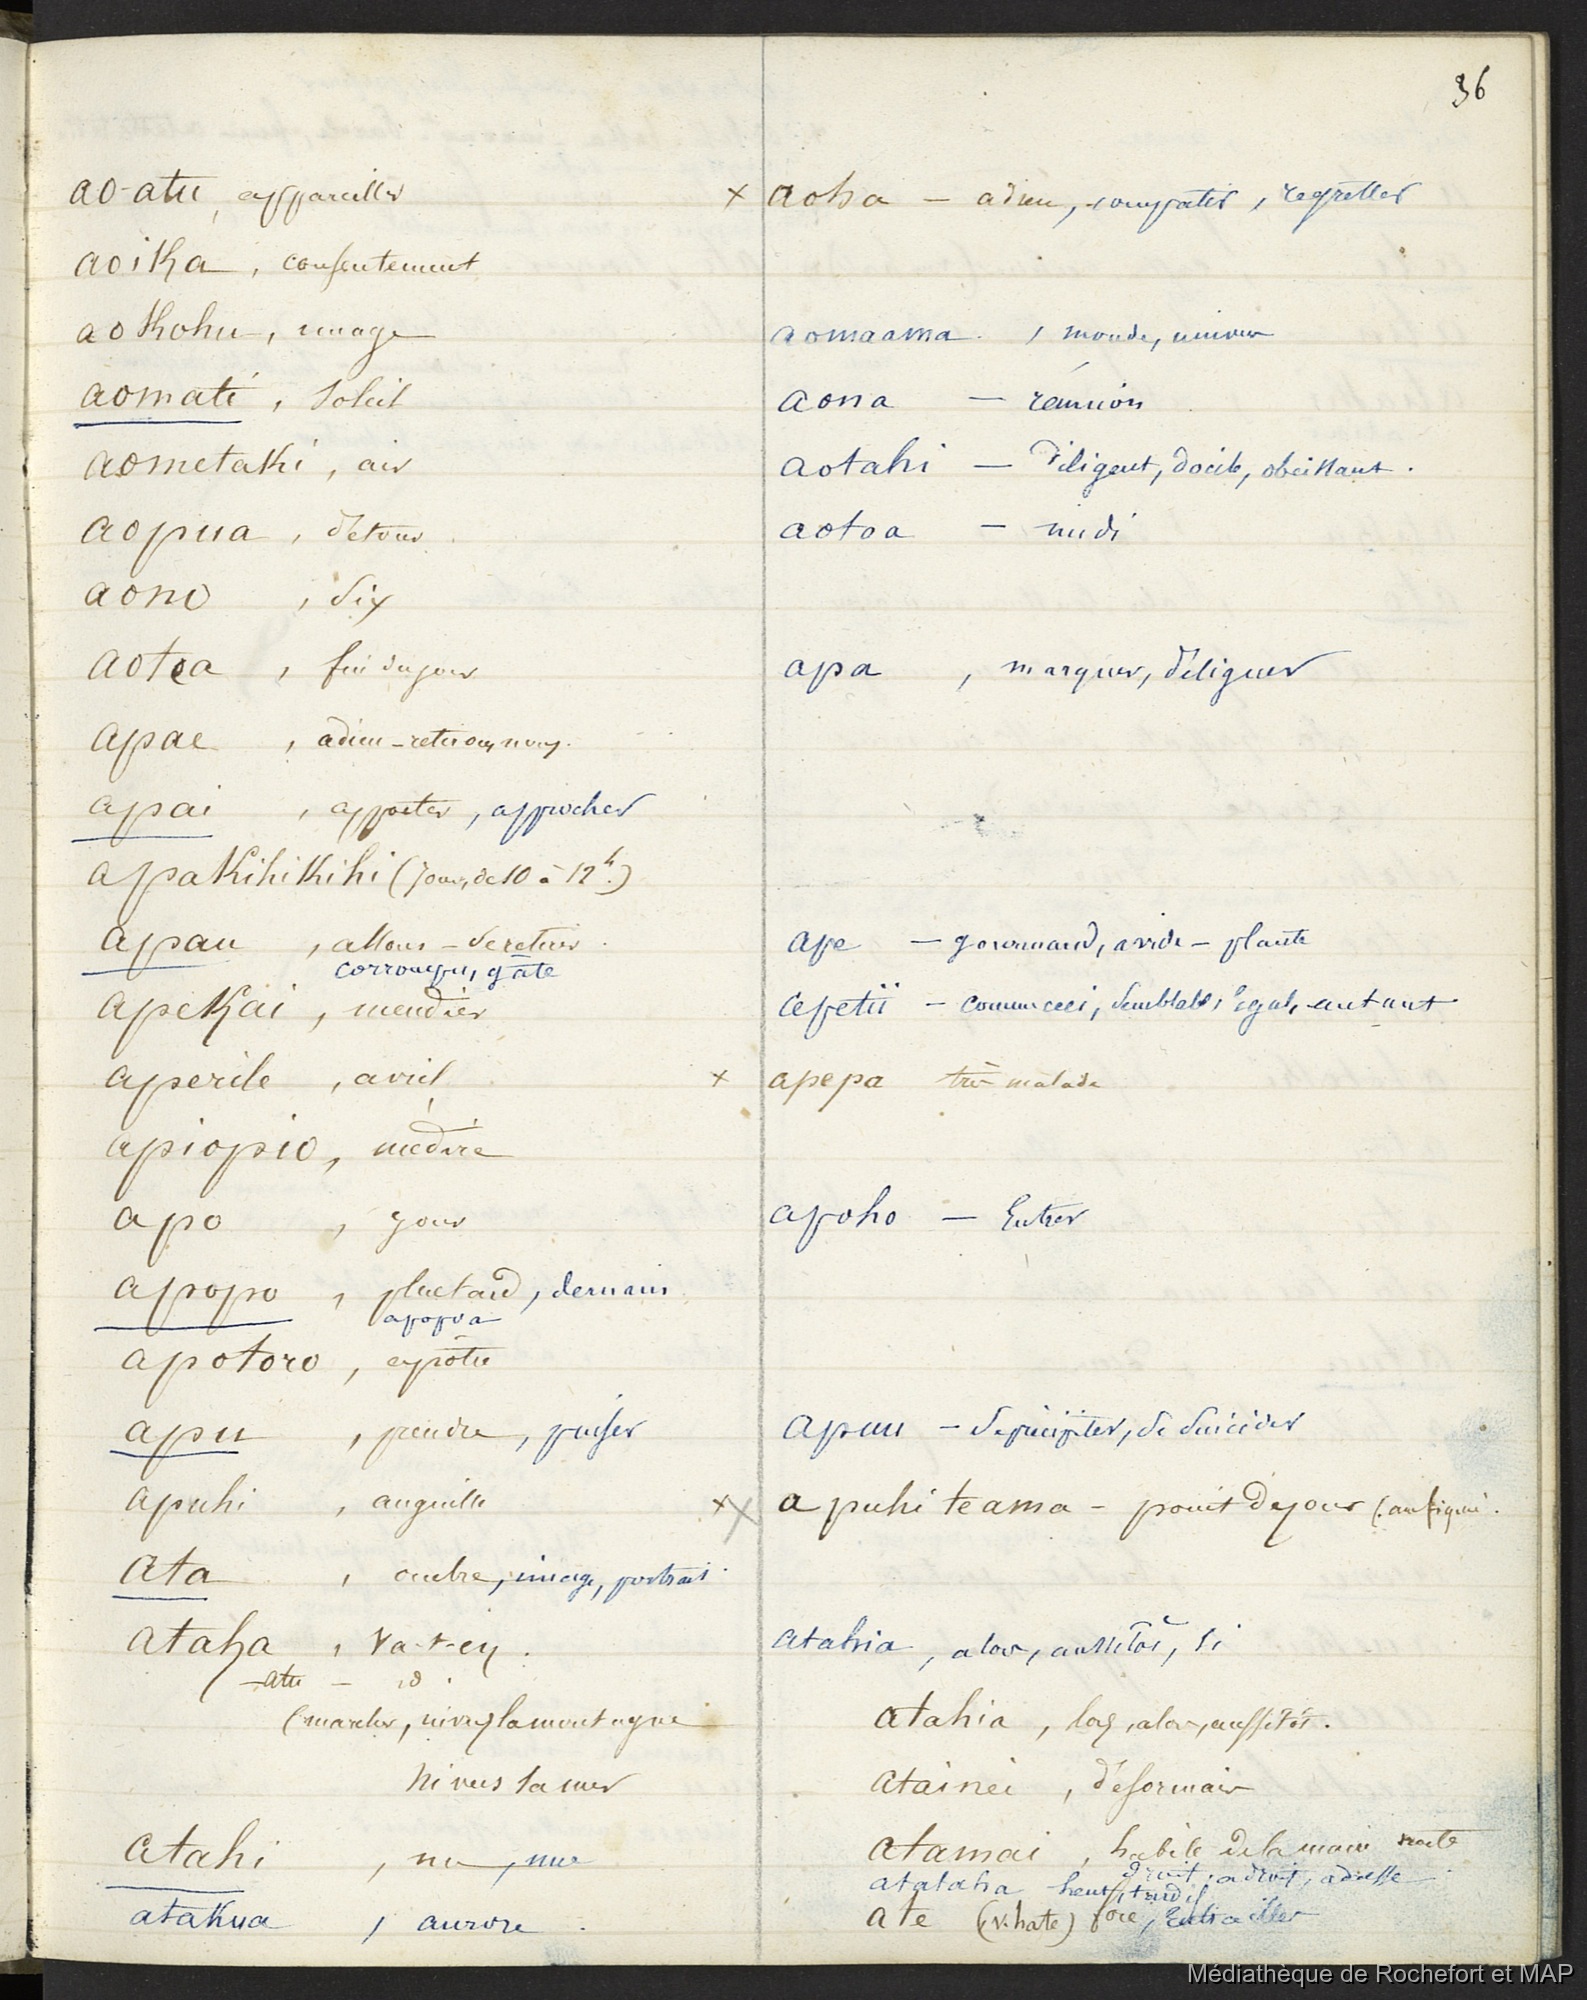 36
ao-atu, appareiller
aoika, consentement
aokohu, nuage
aomati, soleil
aometaki, air
aopua, détour
aono, six
aotea, fin du jour
apae, adieu - retirons nous.
apai, appreter, approcher
apakihikihi (jour, de 10 à 12h.)
apau, allons - se retirer.
corrompu, gâté
apekai, mendier
aperile, avril
apiopio, médire
apo, jour
apopo, plus tard, demain
apopoa
apotoro, apôtre
apu, prendre, puiser
apuhi, anguille
ata, ombre, image, portrait.
ataha, va-t-en.
-atu - id.
(marcher, ni vers la montagne
ni vers la mer
atahi, un, une
atakua, aurore.
x aoha - adieu, compatir, regretter
aomaama, monde, univers
aona - réunion
aotahi - diligent, docile, obéissant.
aotoa - midi
apa, marquer, déliguer
ape - gourmand, avide - plante
apetii - comme ceci, semblable, égal, autant
x apepa très malade
apoho - Entrer
apuu - se précipiter, se suicider
x X a puhi te ama - point de jour (au figuré.
atahia, alors, aussitôt, si
atahia, lors, alors, aussitôt.
atainei, désormais
atamai, habile de la main
droit, adroit, adresse
atataha
ate (v. hate) foie, Entrailles
Médiathèque de Rochefort et MAP